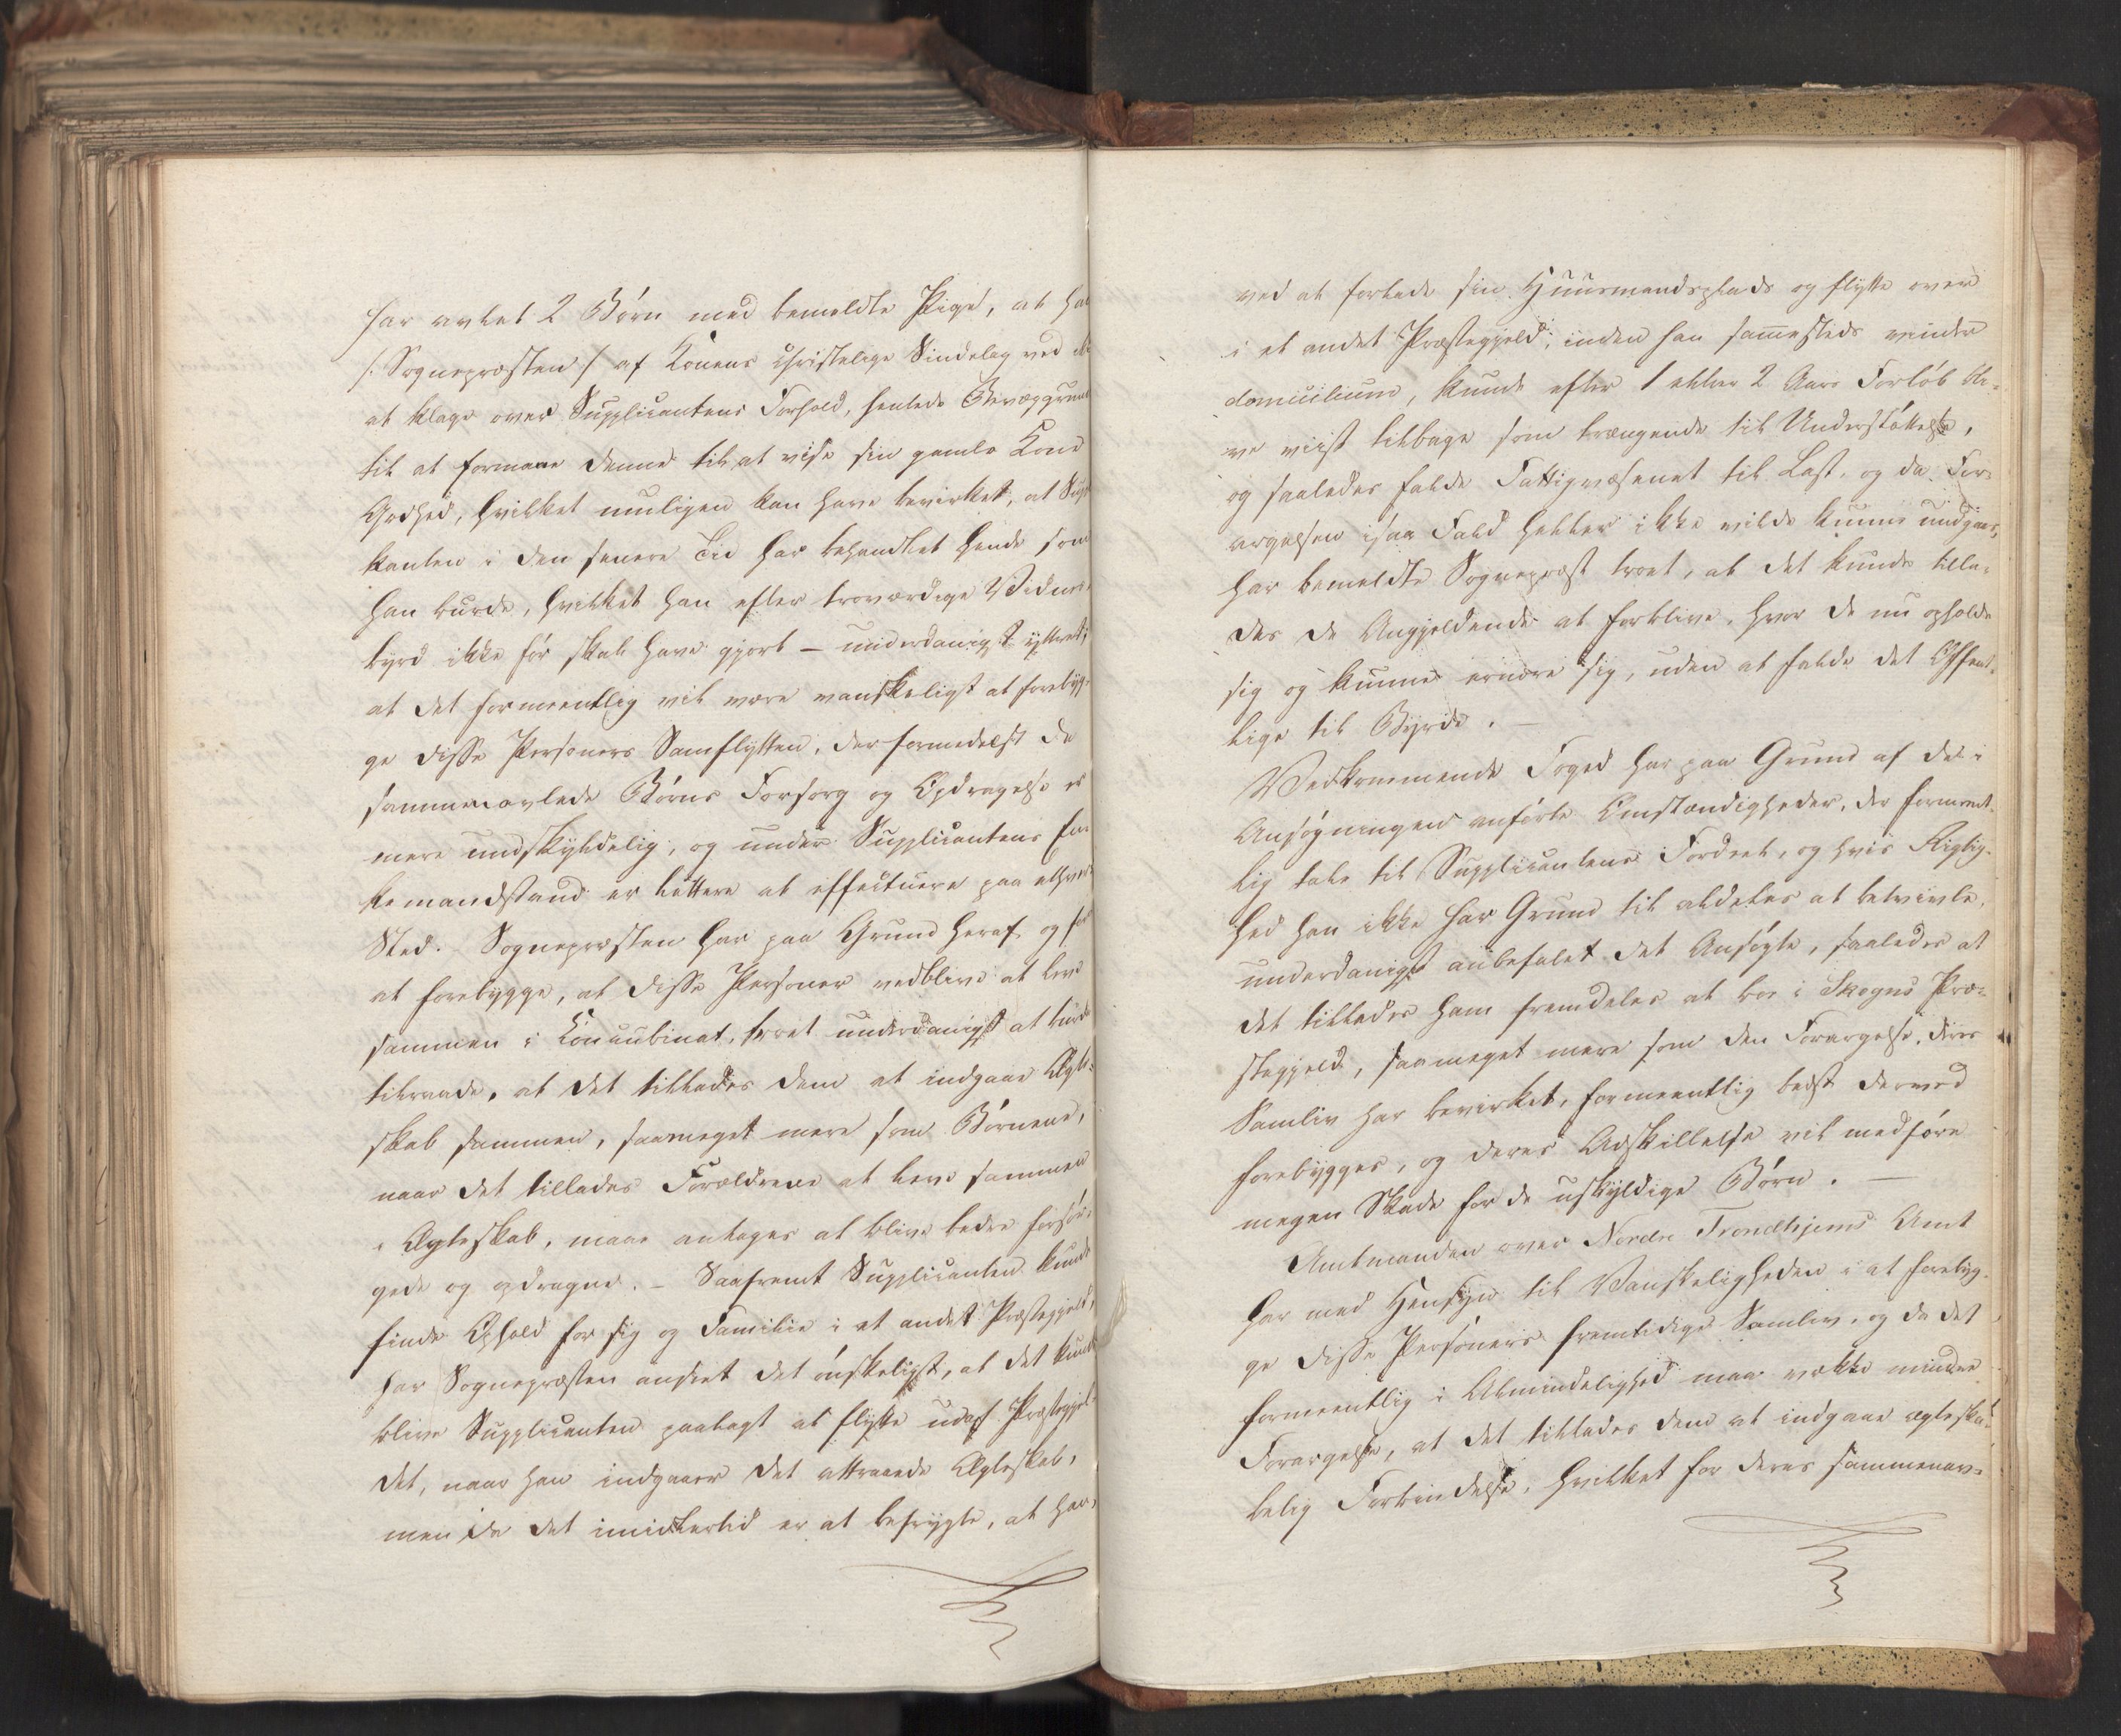 har avlet 2 Børn med bemeldte Pige, at han
/: Sognepræsten :/ af Konens christelige Sindelag ved ei
at klage over Supplicantens Forhold, hentede Bevæggrund
til at formaae denne til at vise sin gamle Kone
Godhed, hvilket muligen kan have bevirket, at Suppli-
kanten i den senere Tid har behandlet hende som
han burde, hvilket han efter troværdige Vidnes-
byrd ikke før skal have gjort – underdanigst yttret,
at det formeentlig vil være vanskeligt at forebyg-
ge disse Personers Samflytten, der formedelst de
sammenavlede Børns Forsorg og Opdragelse er
mere undskyldelig, og under Supplicantens En-
kemandsstand er lettere at effectuere paa ethvert
Sted. Sognepræsten har paa Grund heraf og for
at forebygge, at disse Personer vedblive at leve
sammen i Concubinat, troet underdanigst at burde
tilraade, at det tillades dem at indgaae Ægte-
skab sammen, saameget mere som Børnene,
naar det tillades Forældrene at leve sammen
i Ægteskab, maae antages at blive bedre forsør-
gede og opdragne. – Saafremt Supplicanten kunde
finde Ophold for sig og Familie i et andet Præstegjeld,
har Sognepræsten anseet det ønskeligst, at det kunde
blive Supplicanten paalagt at flytte udaf Præstegjel-
det, naar han indgaaer det attraaede Ægteskab,
men da det imidlertid er at befrygte, at han,
ved at forlade sin Huusmandsplads og flytte over
i et andet Præstegjeld, inden han sammesteds vinder
domicilium, kunde efter 1 eller 2 Aars Forløb bli-
ve viist tilbage som trængende til Understøttelse,
og saaledes falde Fattigvæsenet til Last, og da For-
argelsen isaa Fald heller ikke vilde kunne undgaaes,
har bemeldte Sognepræst troet, at det kunde tilla-
des de Angjeldende at forblive, hvor de nu opholde
sig og kunne ernære sig, uden at falde det Offent-
lige til Byrde. –
Vedkommende Foged har paa Grund af de i
Ansøgningen anførte Omstændigheder, der formeent-
lig tale til Supplicantens Fordeel, og hvis Rigtig-
hed han ikke har Grund til aldeles at betvivle,
underdanigst anbefalet det Ansøgte, saaledes at
det tillades ham fremdeles at boe i Skogns Præ-
stegjeld, saameget mere som den Forargelse, deres
Samliv har bevirket, formeentlig bedst derved
forebygges, og deres Adskillelse vil medføre
megen Skade for de uskyldige Børn. –
Amtmanden over Nordre Trondhjems Amt
har med Hensyn til Vanskeligheden i at forebyg-
ge disse Personers fremtidige Samliv, og da det
formeentlig i Almindelighed maa vække mindre
Forargelse, at det tillades dem at indgaae ægteska-
belig Forbindelse, hvilket for deres sammenav-